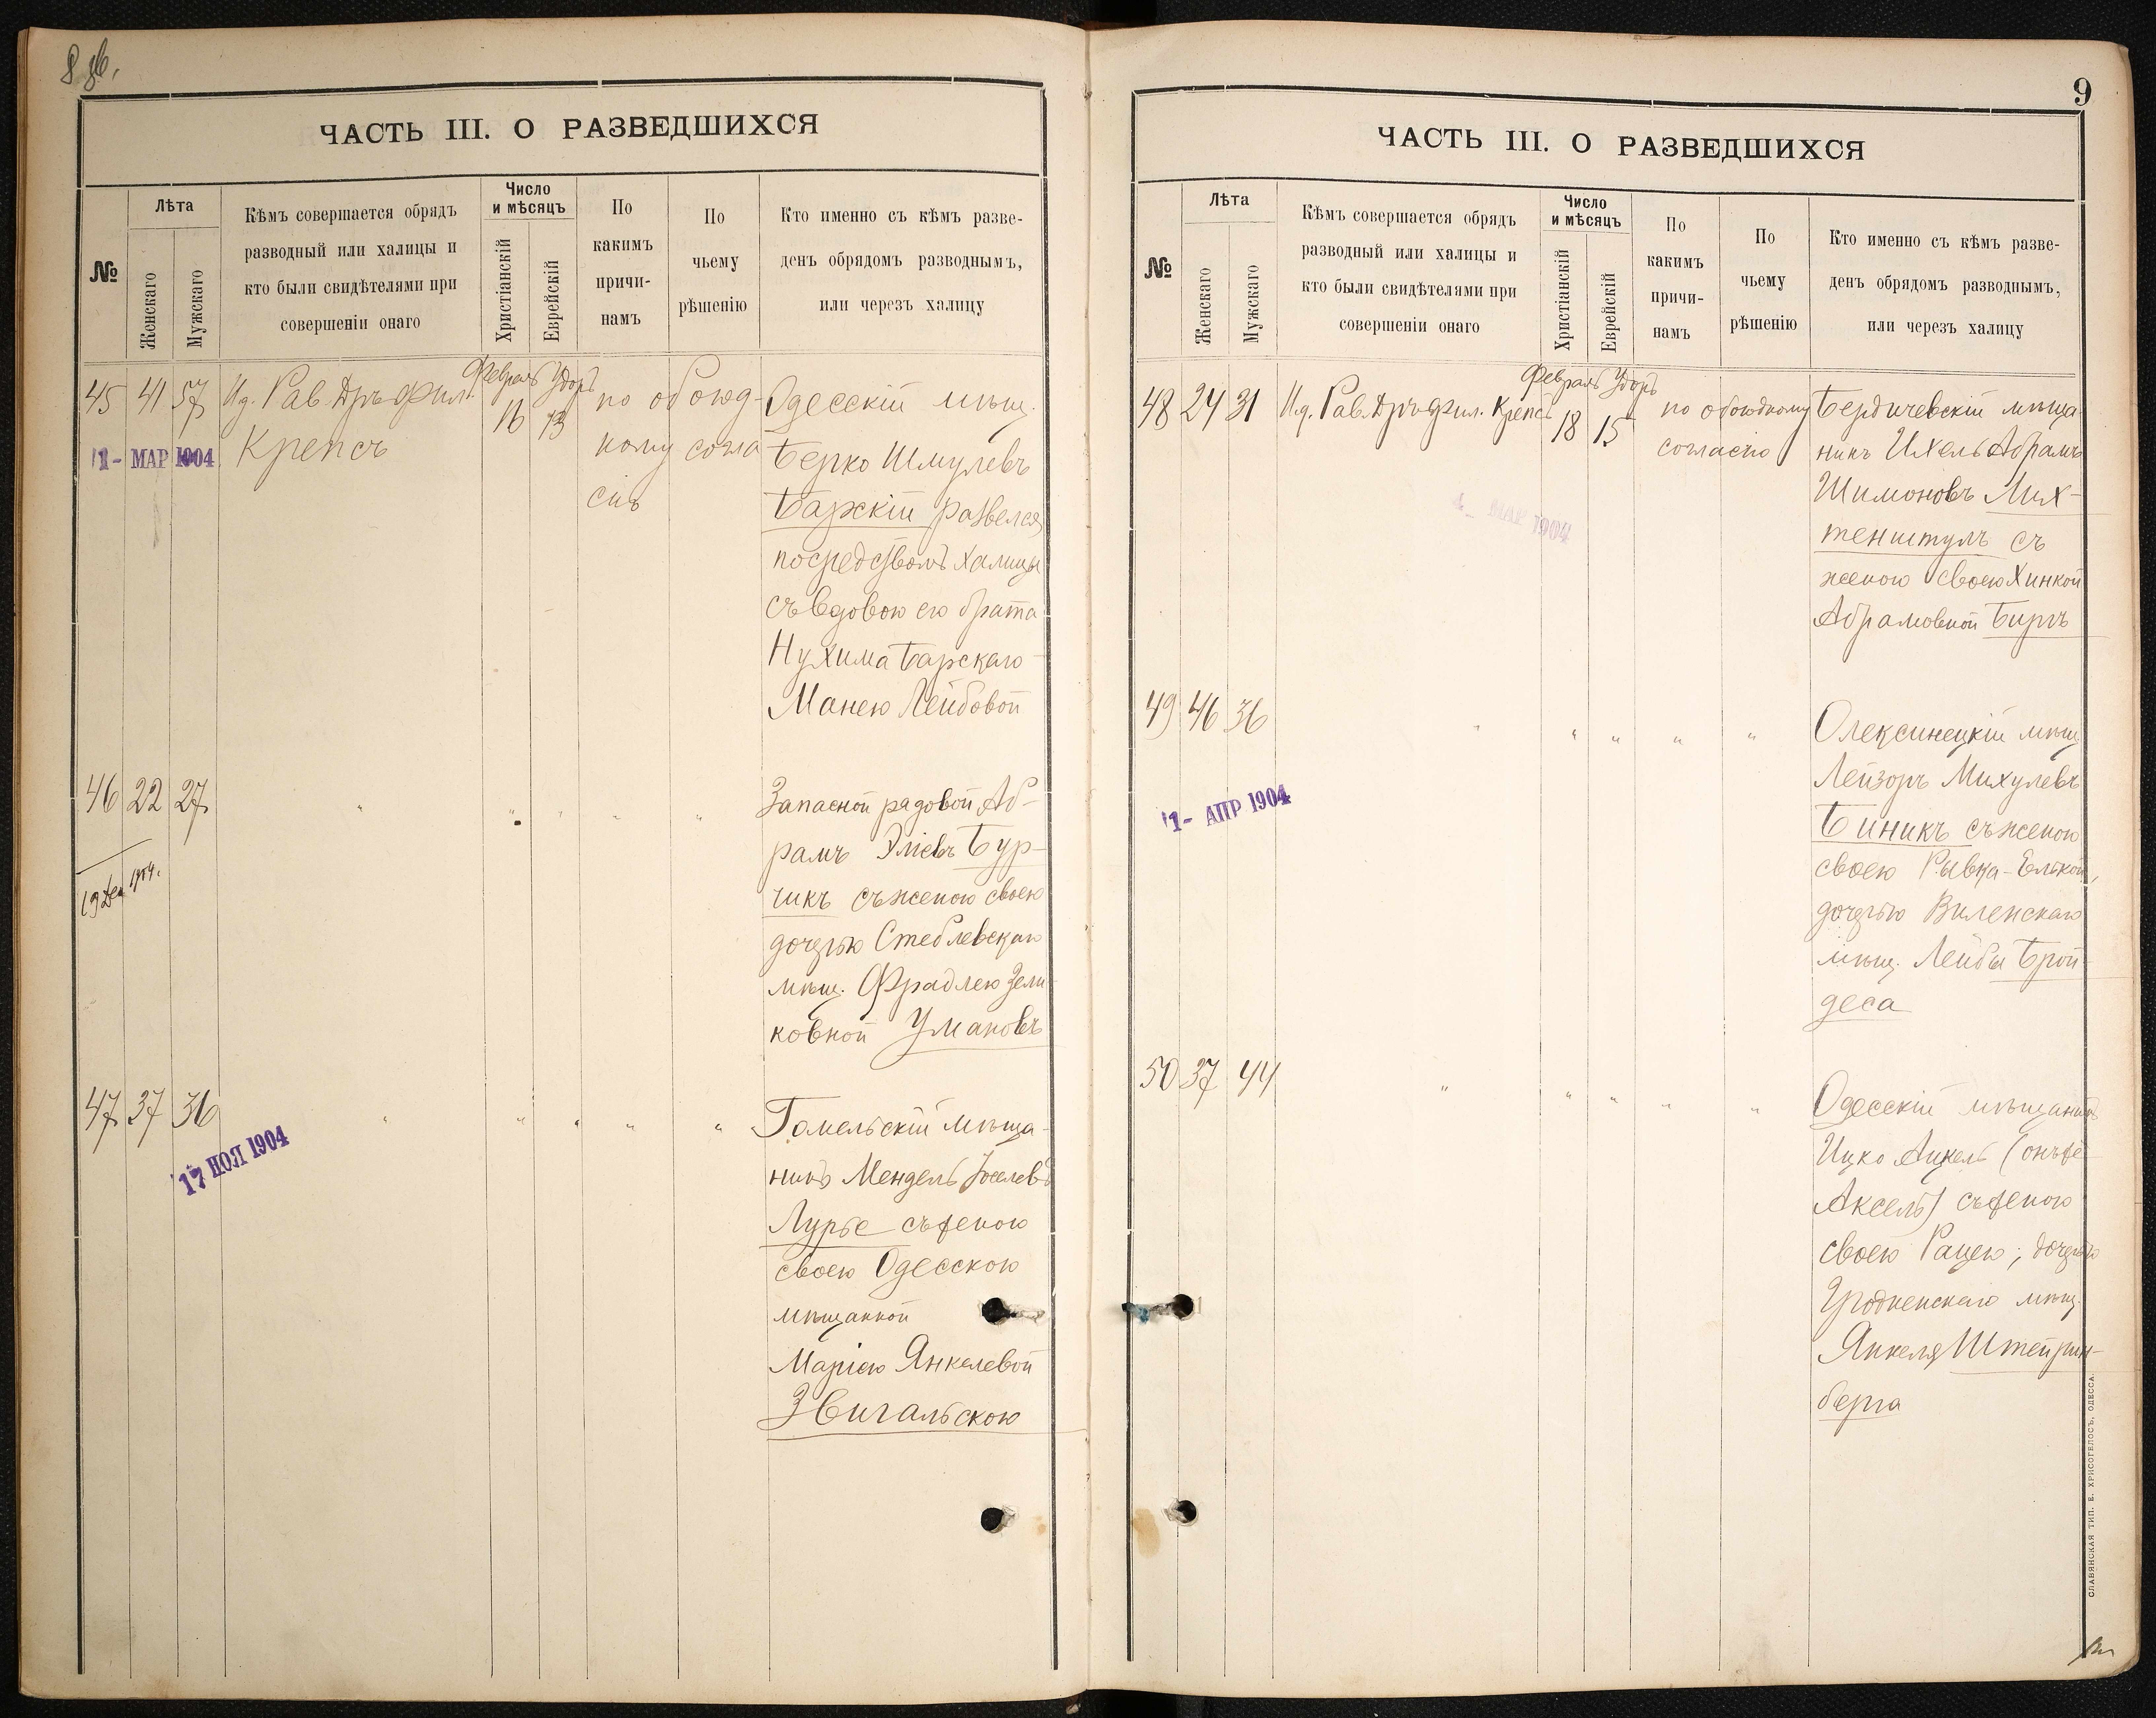 8 об.
ЧАСТЬ III. О РАЗВЕДШИХСЯ
№
Лѣта
Женскаго
Мужскаго
Кѣмъ совершается обрядъ
разводный или халицы и
кто были свидѣтелями при
совершеніи онаго
Число
и мѣсяцъ
Христіанскій
Еврейскій
По
какимъ
причи-
намъ
По
чьему
рѣшенію
Кто именно съ кѣмъ разве-
денъ обрядомъ разводнымъ,
или черезъ халицу
45 41 57 И.д. Рав. Др. Фил.
Крепсъ
1- МАР 1904
Февраль Удоръ
16 13
по обоюд-
ному согла
сію
Одесскій мѣщ.
Берко Шмулевъ
Барскій развелся
посредствомъ халицы
съ вдовою его брата
Нухима Барскаго
Манею Лейбовой
46 22 27 " " " " "
19 Дек 1904.
Запасной рядовой Аб-
рамъ Эліевъ Бур-
чикъ съ женою своею
дочерью Стеблевскаго
мѣщ. Фрадлею Зели
ковной Умановъ
47 37 36 " " " " "
17 НОЯ 1904
Гомельскій мѣща-
нинъ Мендель Іоселевъ
Лурье съ женою
своею Одесскою
мѣщанкой
Маріею Янкелевой
Звигальскою
9
ЧАСТЬ III. О РАЗВЕДШИХСЯ
№
Лѣта
Женскаго
Мужскаго
Кѣмъ совершается обрядъ
разводный или халицы и
кто были свидѣтелями при
совершеніи онаго
Число
и мѣсяцъ
Христіанскій
Еврейскій
По
какимъ
причи-
намъ
По
чьему
рѣшенію
Кто именно съ кѣмъ разве-
денъ обрядомъ разводнымъ,
или черезъ халицу
48 24 31 И.д. Рав. Др. Фил. Крепсъ
Февраль Удоръ
18 15
по обоюдному
согласію
МАР 1904
Бердичевскій мѣща
нинъ Ихель Абрамъ
Шимоновъ Лих-
тенштулъ съ
женою своею Хинкой
Абрамовной Биргъ
49 46 36 " " " " "
1- АПР 1904
Олексинецкій мѣщ.
Лейзоръ Михулевъ
Биникъ съ женою
своею Рывка-Елькой,
дочерью Виленскаго
мѣщ. Лейбы Брой-
деса
50 37 44 " " " " "
Одесскій мѣщанинъ
Ицко Анцель (онъ же
Аксель) съ женою
своею Рацею, дочерью
Гродненскаго мѣщ.
Янкеля Штейрин-
берга
СЛАВЯНСКАЯ ТИП. Е. ХРИСОГЕЛОСЪ, ОДЕССА.